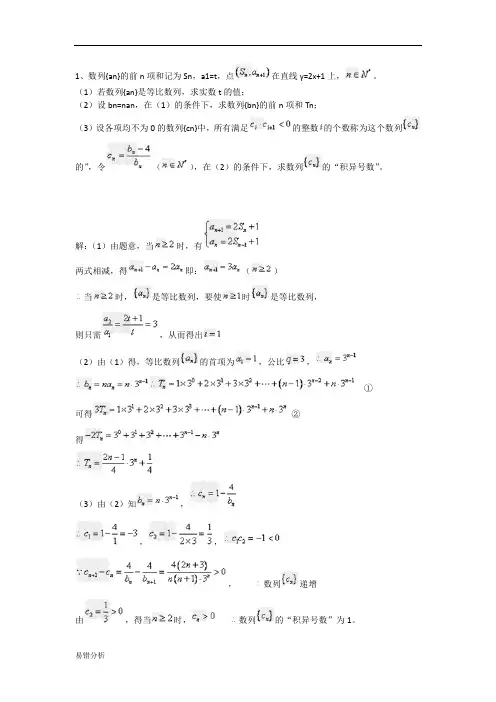 1、数列{an}的前n项和记为Sn，a1=t，点(Sₙ,aₙ₊₁)在直线y=2x+1上，n∈N*。
（1）若数列{an}是等比数列，求实数t的值；
（2）设bn=nan，在（1）的条件下，求数列{bn}的前n项和Tn；
（3）设各项均不为0的数列{cn}中，所有满足cᵢ·cᵢ₊₁<0的整数i的个数称为这个数列{cₙ}
的"，令cₙ=(bₙ-4)/bₙ（n∈N*），在（2）的条件下，求数列{cₙ}的“积异号数”。
解：（1）由题意，当n≥2时，有{aₙ₊₁=2Sₙ+1 aₙ=2Sₙ₋₁+1
两式相减，得aₙ₊₁-aₙ=2aₙ即：aₙ₊₁=3aₙ（n≥2）
∴当n≥2时，{aₙ}是等比数列，要使n≥1时{aₙ}是等比数列，
则只需a₂/a₁=(2t+1)/t=3，从而得出t=1
（2）由（1）得，等比数列{aₙ}的首项为a₁=1，公比q=3，∴aₙ=3ⁿ⁻¹
∴bₙ=naₙ=n·3ⁿ⁻¹∴Tₙ=1×3⁰+2×3¹+3×3²+⋯+(n-1)·3ⁿ⁻²+n·3ⁿ⁻¹ ①
可得3Tₙ=1×3¹+2×3²+3×3³+⋯+(n-1)·3ⁿ⁻¹+n·3ⁿ ②
得-2Tₙ=3⁰+3¹+3²+⋯+3ⁿ⁻¹-n·3ⁿ
∴Tₙ=(2n-1)/4·3ⁿ+1/4
（3）由（2）知bₙ=n·3ⁿ⁻¹，∴cₙ=1-4/bₙ
∴c₁=1-4/1=-3，c₂=1-4/(2×3)=1/3，∴c₁c₂=-1<0
∵cₙ₊₁-cₙ=4/bₙ-4/bₙ₊₁=4(2n+3)/(n(n+1)·3ⁿ)>0，∴数列{cₙ}递增
由c₂=1/3>0，得当n≥2时，cₙ>0 ∴数列{cₙ}的“积异号数”为1。
易错分析